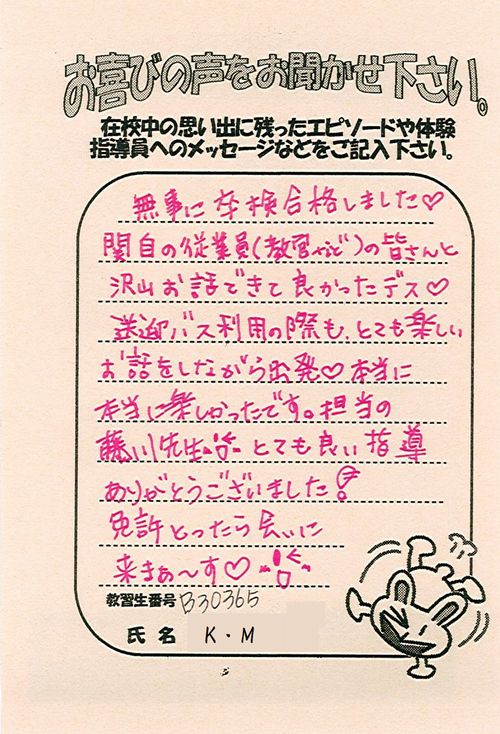 お喜びの声をお聞かせ下さい。
在校中の思い出に残ったエピソードや体験
指導員へのメッセージなどをご記入下さい。
無事に卒検合格しました♡
関自の従業員(教官など)の皆さんと
沢山お話できて良かったデス♡
送迎バス利用の際も、とても楽しい
お話をしながら出発♡本当に
本当に楽しかったです。担当の
藤川先生 とても良い指導
ありがとうございました!
免許とったら会いに
来まぁ〜す♡
教習生番号 B30365
氏名 K・M